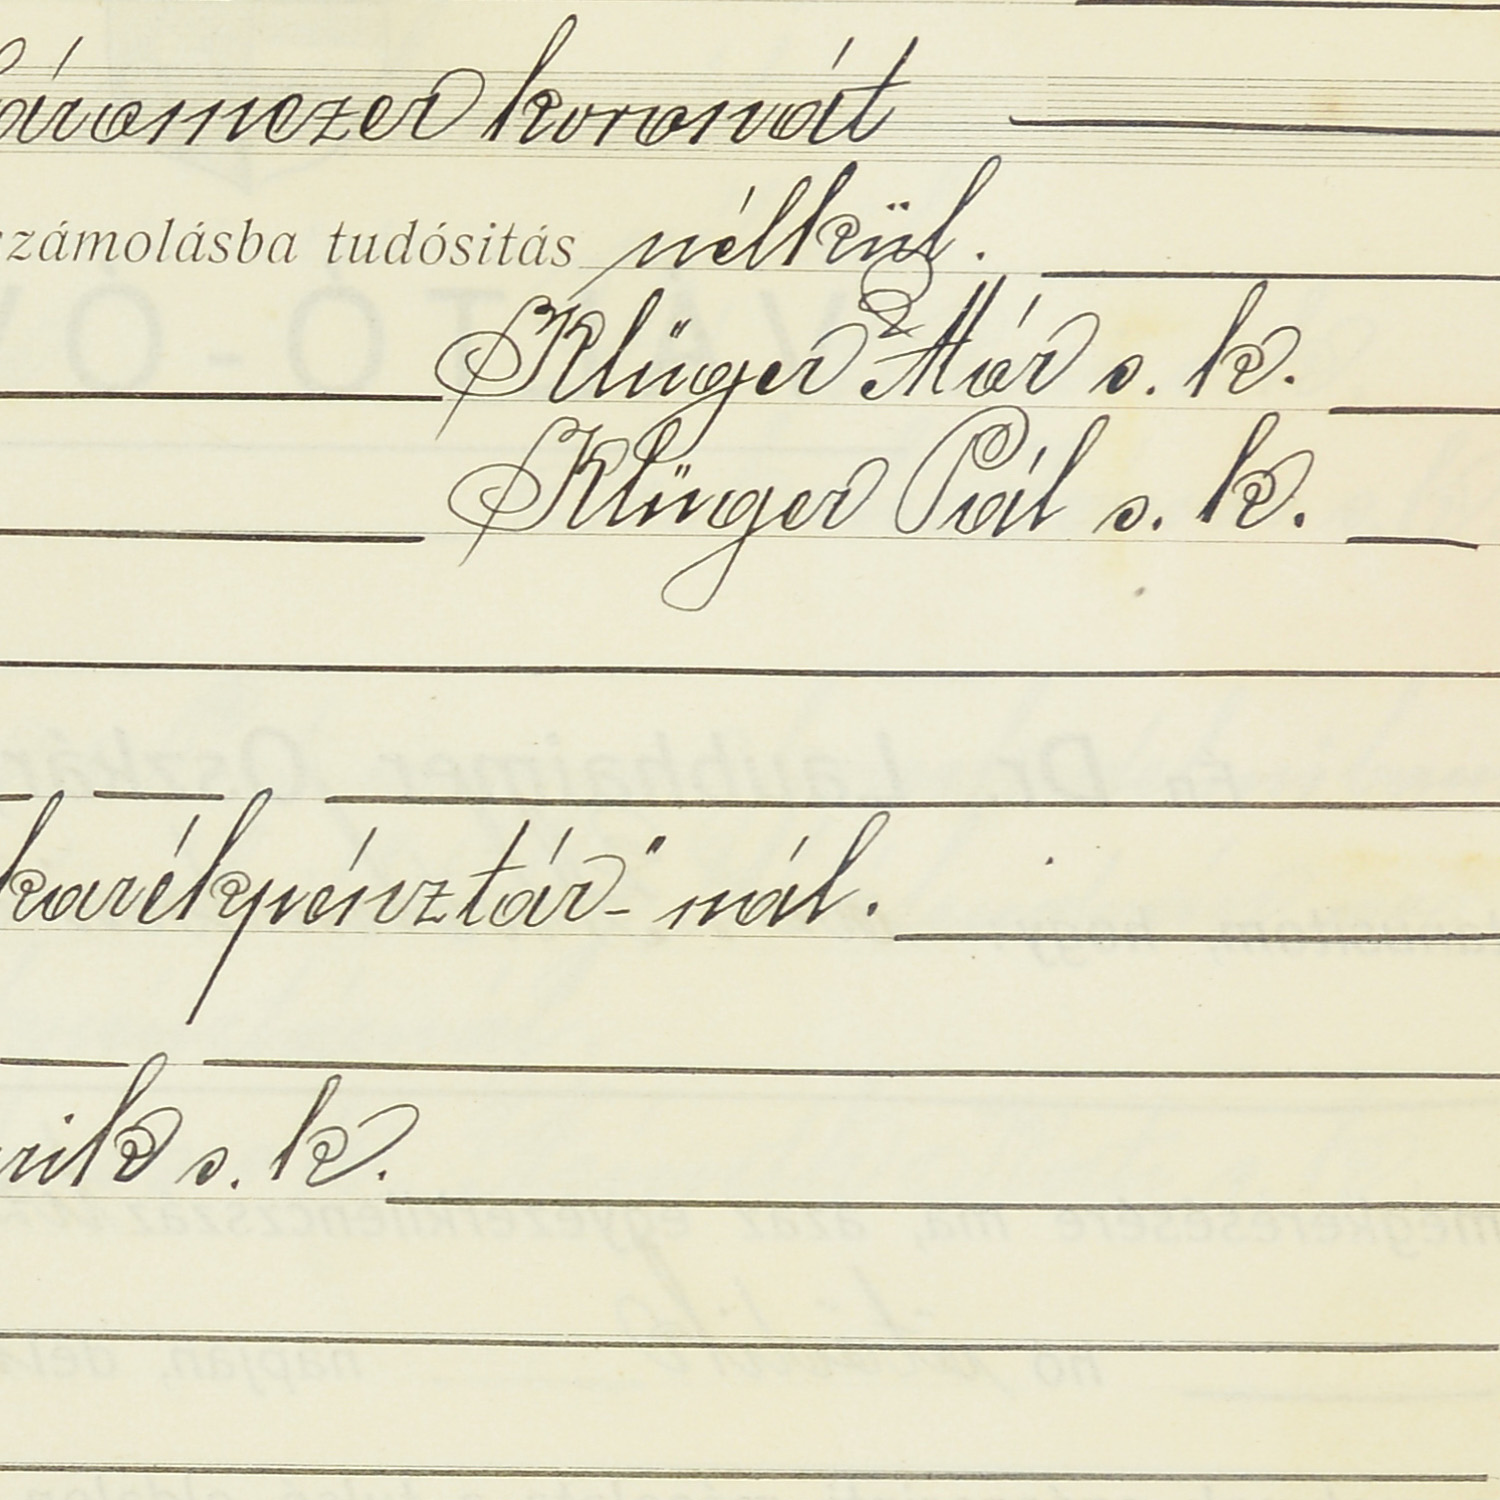 áromezer koronát
számolásba tudósitás nélkül.
Klüger Mór s. k.
Klüger Pál s. k.
karékpénztár-" nál.
rik s. k.